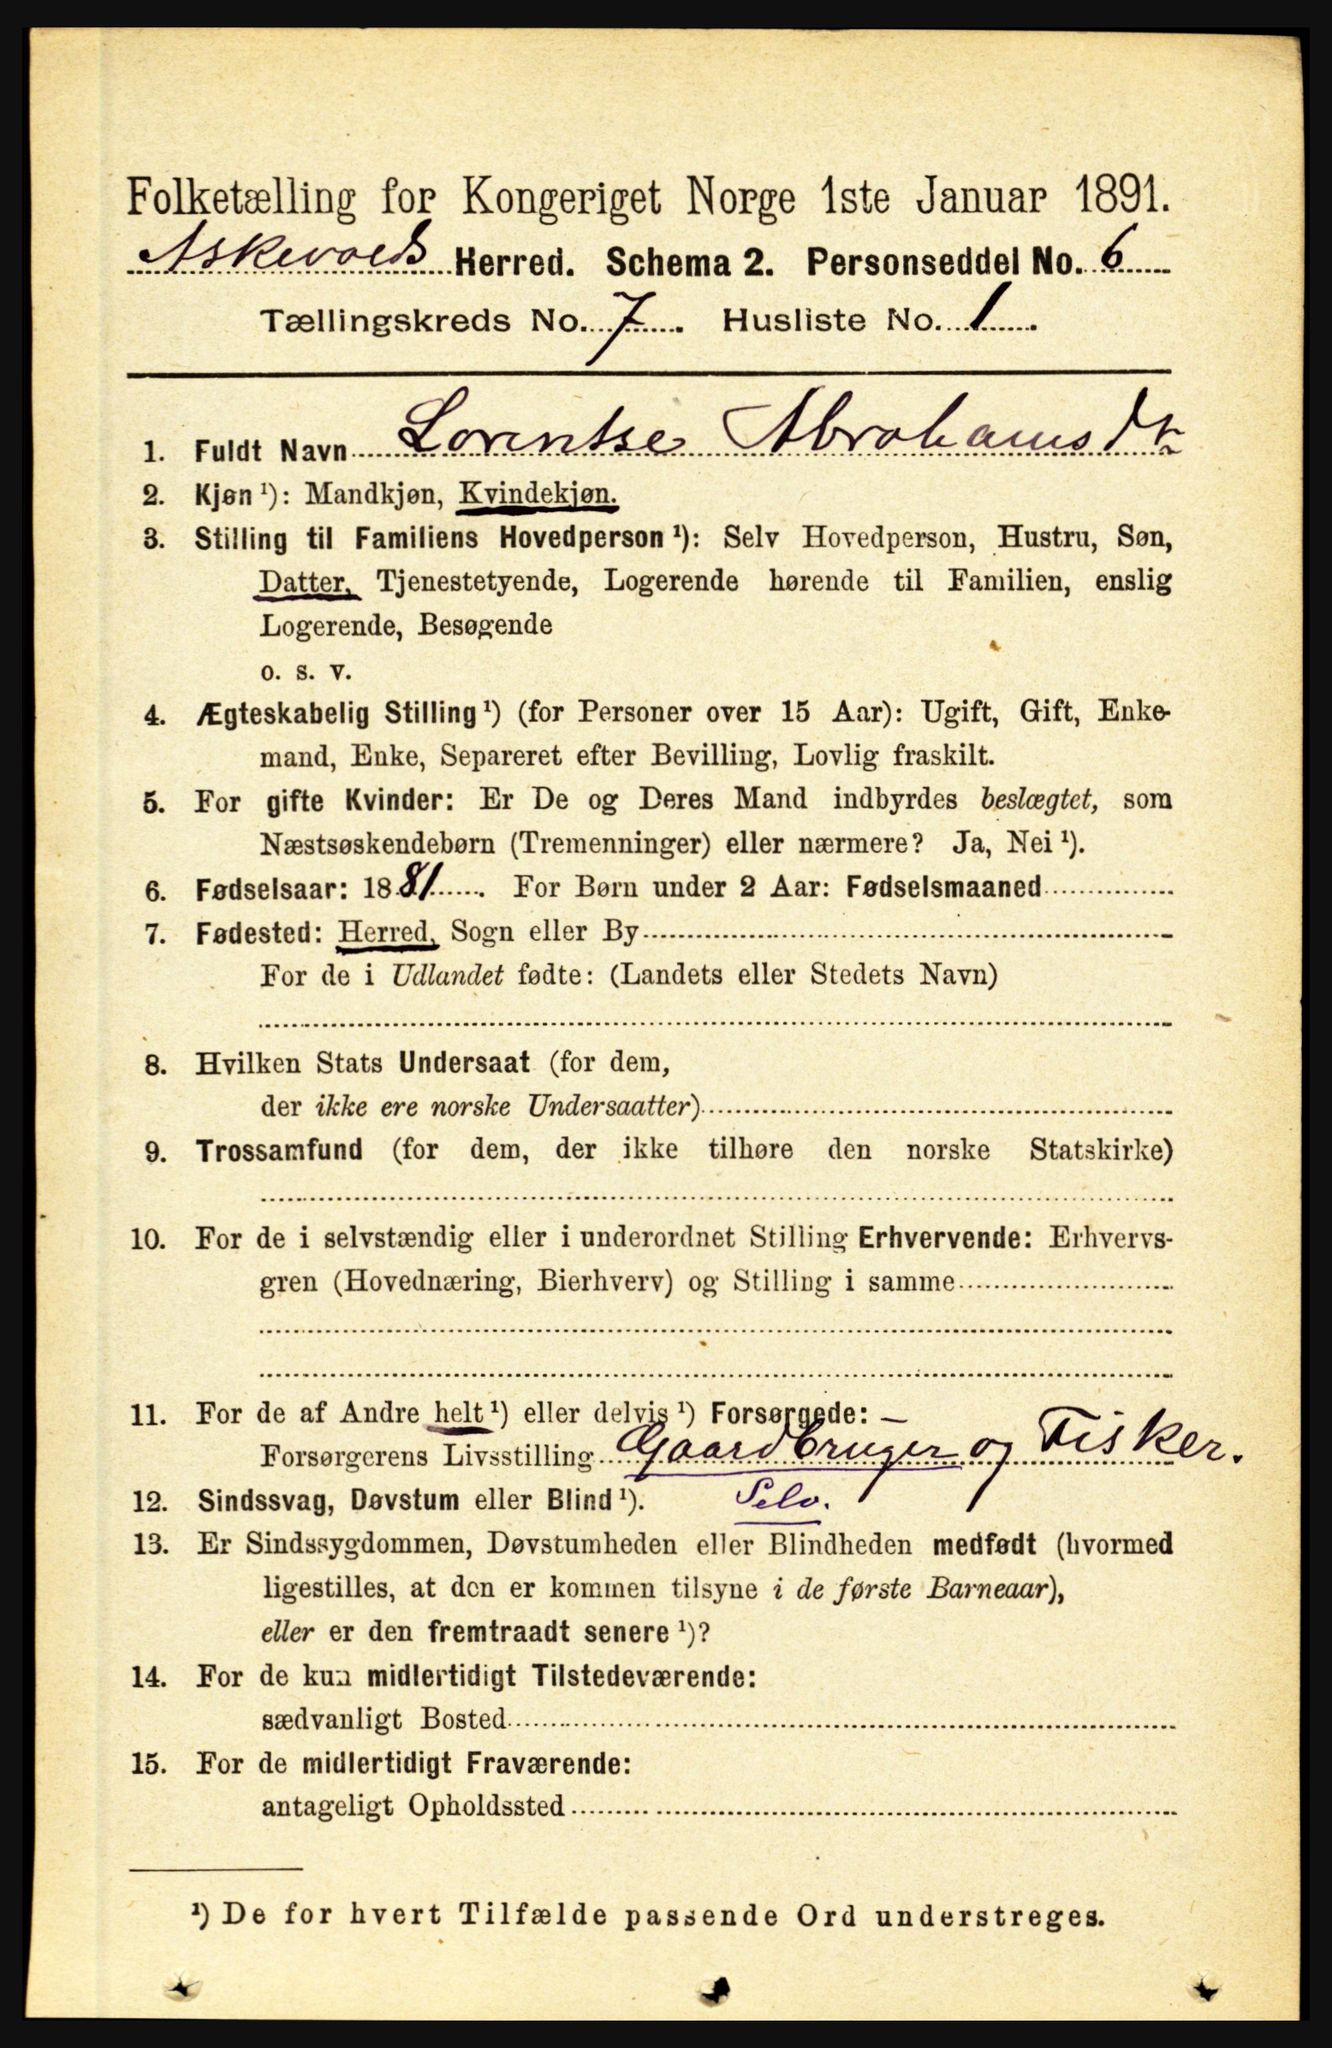 Folketælling for Kongeriget Norge 1ste Januar 1891.
Askevolds Herred. Schema 2. Personseddel No. 6
Tællingskreds No. 7. Husliste No. 1.
1. Fuldt Navn Lorentse Abrahamsdtr
2. Kjøn ¹): Mandkjøn, Kvindekjøn.
3. Stilling til Familiens Hovedperson ¹): Selv Hovedperson, Hustru, Søn,
Datter, Tjenestetyende, Logerende hørende til Familien, enslig
Logerende, Besøgende
o. s. v.
4. Ægteskabelig Stilling ¹) (for Personer over 15 Aar): Ugift, Gift, Enke-
mand, Enke, Separeret efter Bevilling, Lovlig fraskilt.
5. For gifte Kvinder: Er De og Deres Mand indbyrdes beslægtet, som
Næstsøskendebørn (Tremenninger) eller nærmere? Ja, Nei ¹).
6. Fødselsaar: 1881. For Børn under 2 Aar: Fødselsmaaned
7. Fødested: Herred, Sogn eller By
For de i Udlandet fødte: (Landets eller Stedets Navn)
8. Hvilken Stats Undersaat (for dem,
der ikke ere norske Undersaatter)
9. Trossamfund (for dem, der ikke tilhøre den norske Statskirke)
10. For de i selvstændig eller i underordnet Stilling Erhvervende: Erhvervs-
gren (Hovednæring, Bierhverv) og Stilling i samme
11. For de af Andre helt ¹) eller delvis ¹) Forsørgede: —
Forsørgerens Livsstilling Gaardbruger og Fisker.
12. Sindssvag, Døvstum eller Blind ¹). Selv.
13. Er Sindssygdommen, Døvstumheden eller Blindheden medfødt (hvormed
ligestilles, at den er kommen tilsyne i de første Barneaar),
eller er den fremtraadt senere ¹)?
14. For de kun midlertidigt Tilstedeværende:
sædvanligt Bosted
15. For de midlertidigt Fraværende:
antageligt Opholdssted
¹) De for hvert Tilfælde passende Ord understreges.